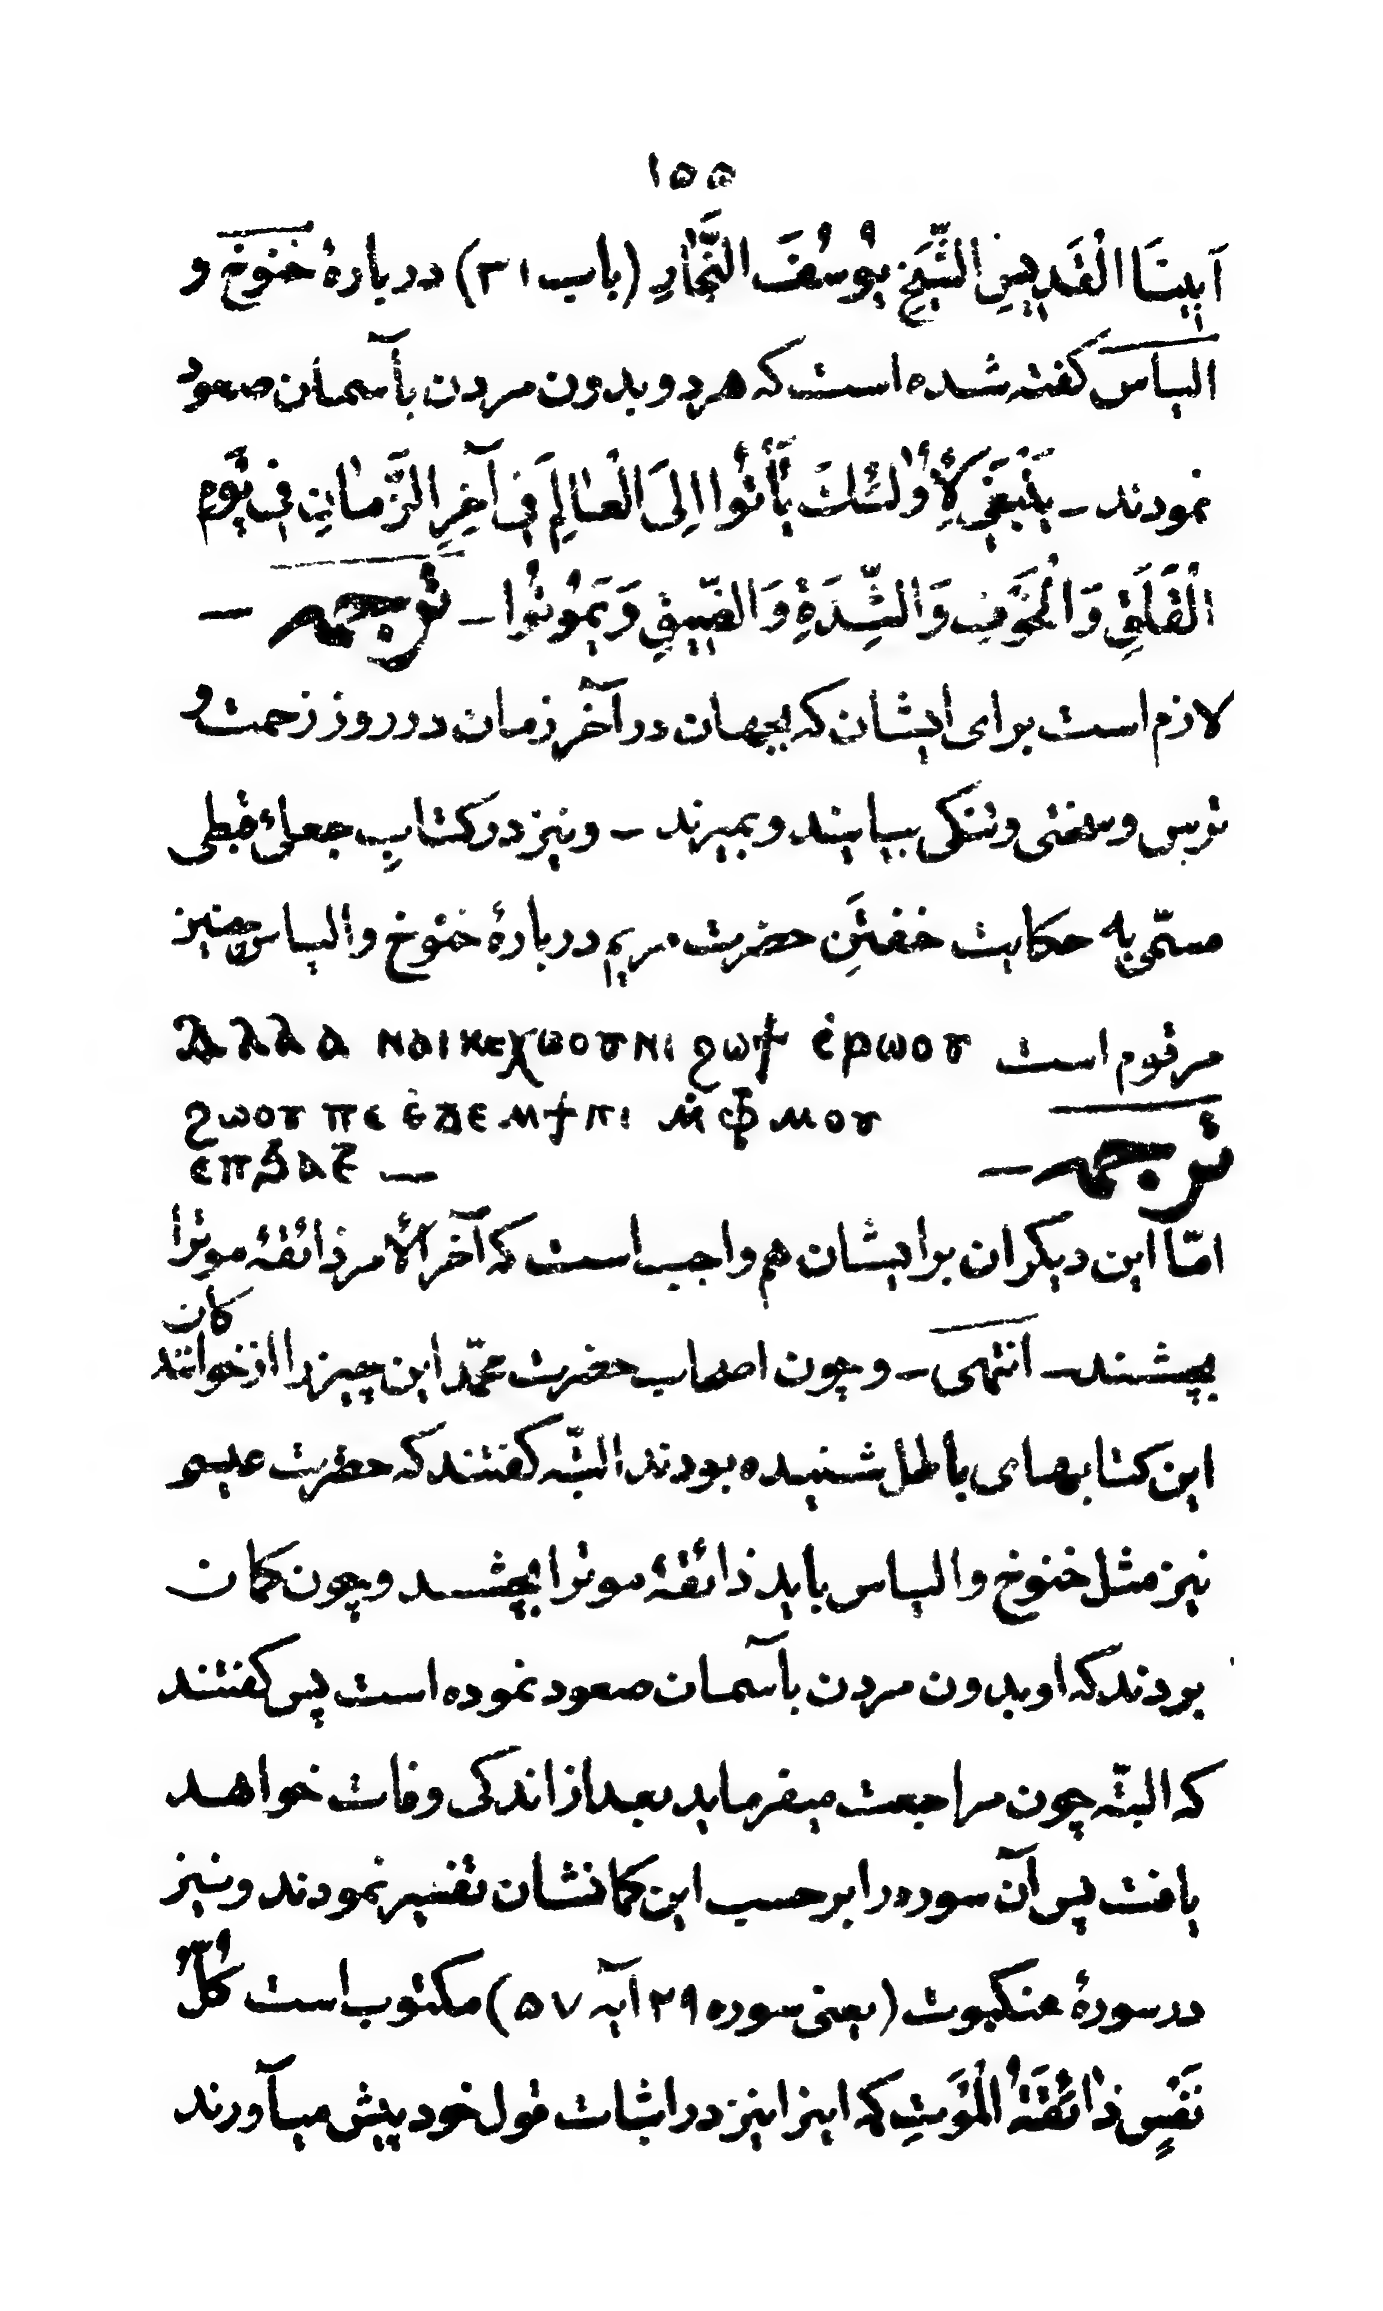 ۱۵۵
اَبِینَا الْقَدِیسِ الشَّیْخِ یُوسُفَ النَّجّارِ (باب ۳۱) دربارهٔ خنوخ و
الیاس گفته شده است که هر دو بدون مردن بآسمان صعود
نمودند ـ یَنْبَغِی لِأُولٰئِكَ یَأْتُوا اِلَی الْعالَمِ فِی آخِرِ الزَّمانِ فِی یَوْمِ
الْقَلَقِ وَالْخَوْفِ وَالشِّدَةِ وَالضِّیقِ وَیَمُوتُوا ـ ترجمه ـ
لازم است برای ایشان که بجهان در آخر زمان در روز زحمت و
ترس و سختی و تنگی بیایند و بمیرند ـ و نیز در کتابِ جعلیٔ قبطی
مسمّی به حکایت خفتنِ حضرت مریم دربارهٔ خنوخ و الیاس چنین
مرقوم است ⲁⲗⲗⲁ ⲛⲁⲓⲕⲉⲭⲱⲟⲩⲛⲓ ϩⲱϯ ⲉ̇ⲣⲱⲟⲩ
ϩⲱⲟⲩ ⲡⲉ ⲉ̇ϫⲉⲙϯⲡⲓ ⲙ̇ⲫⲙⲟⲩ
ترجمه ـ ⲉⲡϧⲁⲉ ـ
امّا این دیگران بر ایشان هم واجب است که آخر الأمر ذائقهٔ موترا
بچشند ـ انتهی ـ و چون اصحاب حضرت محمّد این چیز را از خوانندکان
این کتابهای باطل شنیده بودند البتّه گفتند که حضرت عیسی
نیز مثل خنوخ و الیاس باید ذائقهٔ موترا بچشد و چون گمان
بردند که او بدون مردن بآسمان صعود نموده است پس گفتند
که البتّه چون مراجعت میفرماید بعد از اندکی وفات خواهد
یافت پس آن سوره را بر حسب این گمانشان تفسیر نمودند و نیز
در سورهٔ عنکبوت (یعنی سوره ۲۹ آیه ۵۷) مکتوب است کُلُّ
نَفْسٍ ذائقَةُ الْمَوْتِ که اینرا نیز در اثبات قول خود پیش میآورند